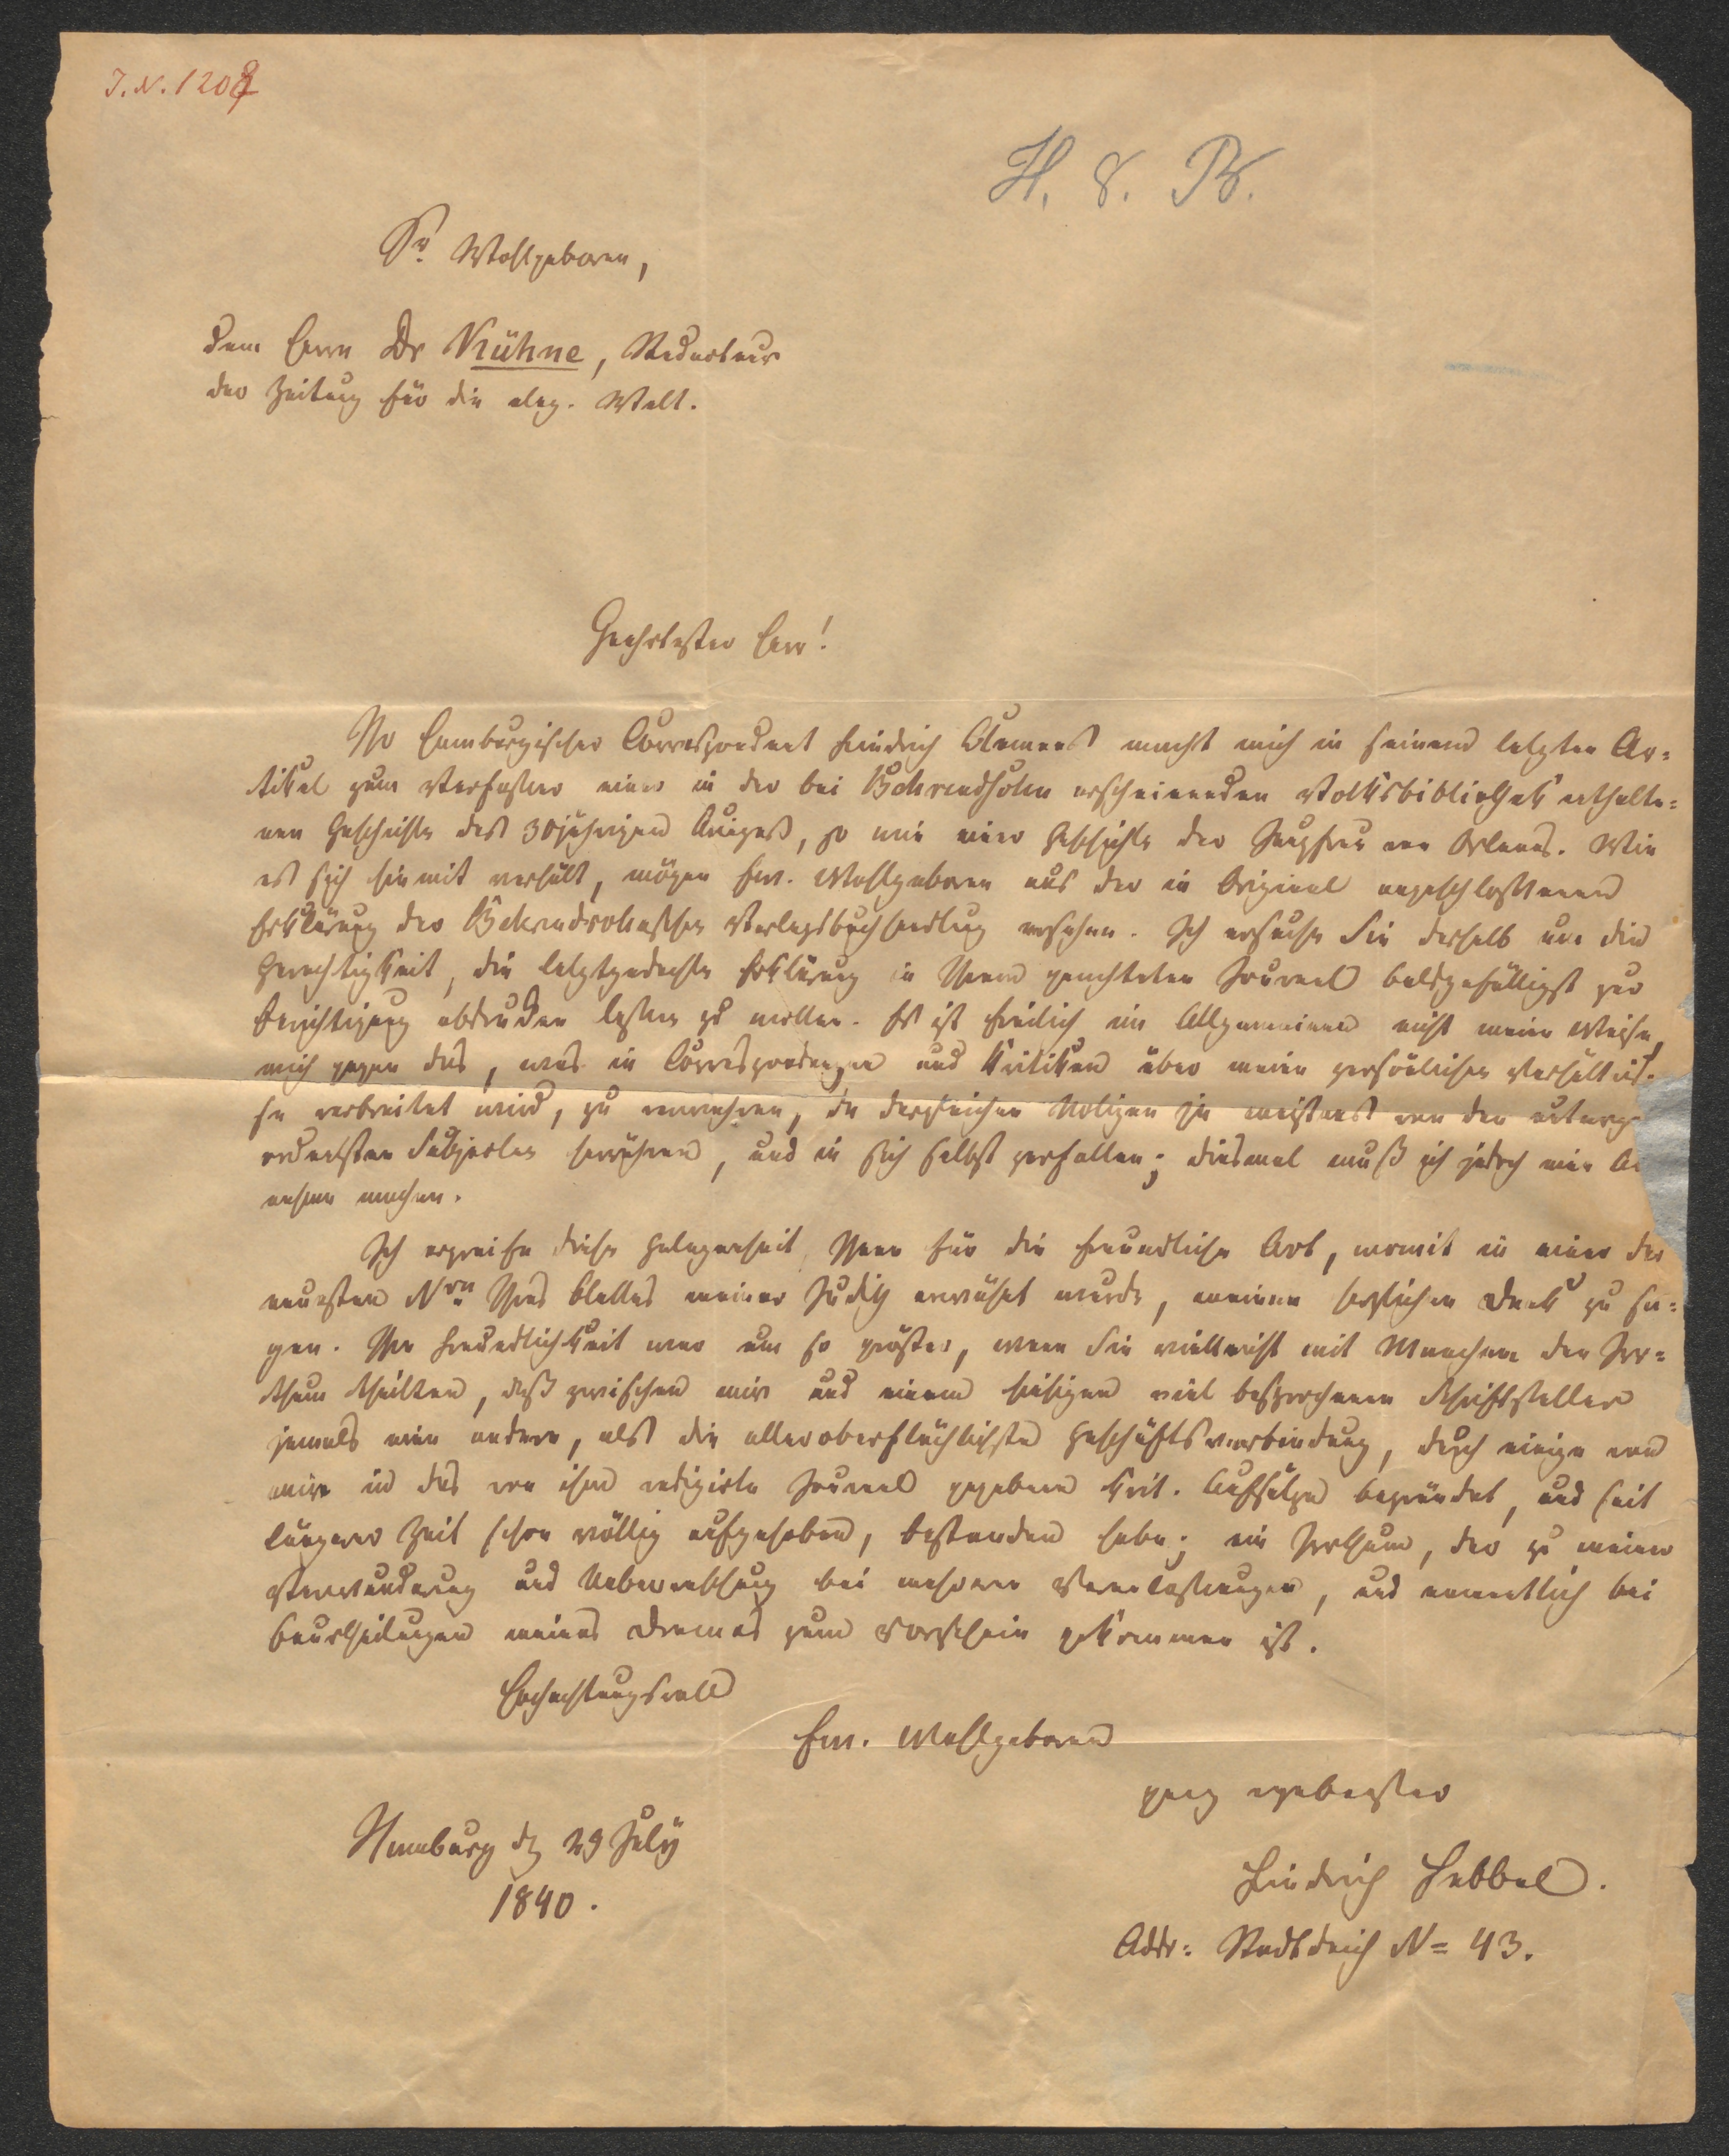 J. N. 1208
H. 8. Br.
Sr Wohlgeboren,
dem Herrn Dr Kühne, Redacteur
der Zeitung für die eleg. Welt.
Geehrtester Herr!
Ihr Hamburgischer Correspondent Heinrich Clemens macht mich in seinem letzten Ar=
tikel zum Verfasser einer in der bei Behrendsohn erscheinenden Volksbibliothek enthalte=
nen Geschichte des 30jährigen Krieges, so wie einer Geschichte der Jungfrau von Orleans. Wie
es sich hiemit verhält, mögen Ew. Wohlgeboren aus der in Original angeschlossenen
Erklärung der Behrendsohnschen Verlagsbuchhandlung ersehen. Ich ersuche Sie deshalb um die
Gerechtigkeit, die letztgedachte Erklärung in Ihrem geachteten Journal baldgefälligst zur
Berichtigung abdrucken lassen zu wollen. Es ist freilich im Allgemeinen nicht meine Weise,
mich gegen das, was in Correspondenzen und Kritiken über meine persönlichen Verhältnis=
se verbreitet wird, zu verwahren, da dergleichen Notizen ja meistens von den unterge
ordnetsten Subjecten herrühren, und in sich selbst zerfallen; diesmal muß ich jedoch eine Au
nahme machen.
Ich ergreife diese Gelegenheit, Ihnen für die freundliche Art, womit in einer der
neuesten Nrn Ihres Blattes meiner Judith erwähnt wurde, meinen herzlichen Dank zu sa=
gen. Ihre Freundlichkeit war um so größer, wenn Sie vielleicht mit Manchem den Irr=
thum theilten, daß zwischen mir und einem hiesigen viel besprochenen Schriftsteller
jemals eine andere, als die alleroberflächlichste Geschäftsverbindung, durch einige von
mir in das von ihm redigirte Journal gegebene krit. Aufsätze begründet, und seit
längerer Zeit schon völlig aufgehoben, bestanden habe; ein Irrthum, der zu meiner
Verwunderung und Ueberraschung bei mehreren Veranlassungen, und namentlich bei
Beurtheilungen meines Dramas zum Vorschein gekommen ist.
Hochachtungsvoll
Ew. Wohlgeboren
ganz ergebenster
Friedrich Hebbel.
Hamburg d 29 July
1840.
Addr: Stadtdeich N= 43.